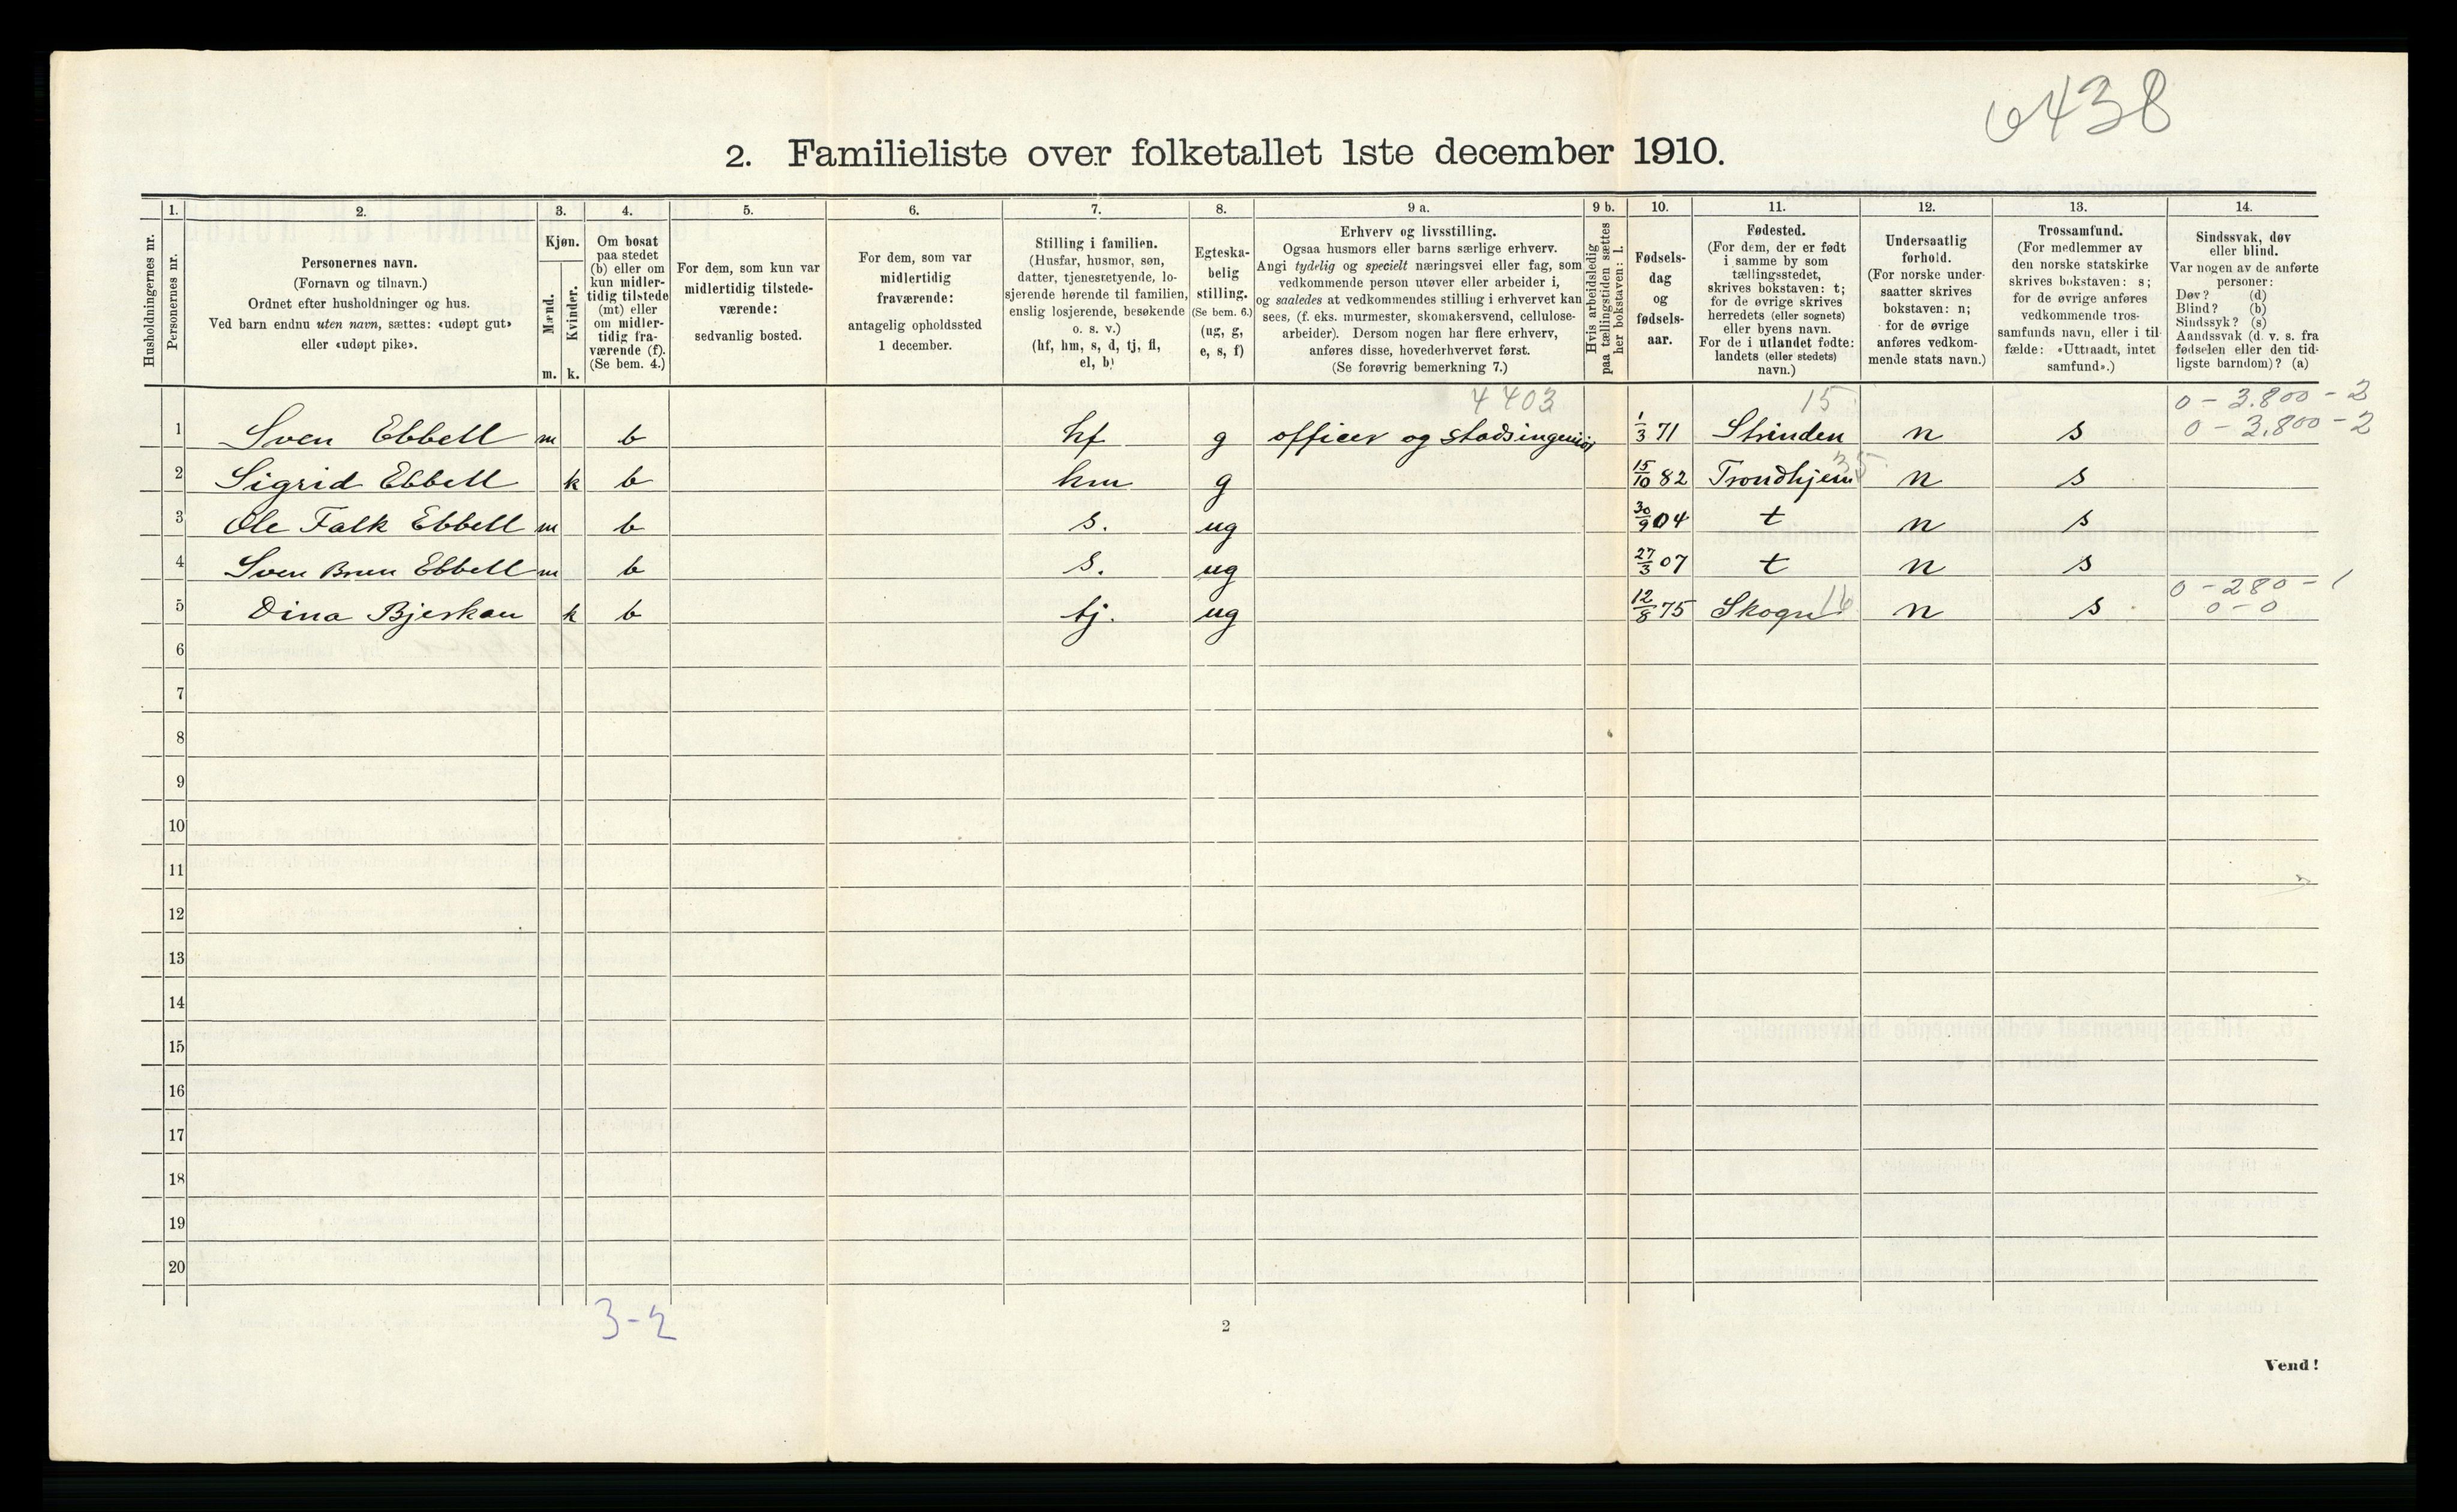 6438
2. Familieliste over folketallet 1ste december 1910.
Husholdningernes nr.
1.
Personernes nr.
2.
Personernes navn.
(Fornavn og tilnavn.)
Ordnet efter husholdninger og hus.
Ved barn endnu uten navn, sættes: «udøpt gut»
eller «udøpt pike».
3.
Kjøn.
Mænd.
m.
Kvinder.
k.
4.
Om bosat
paa stedet
(b) eller om
kun midler-
tidig tilstede
(mt) eller
om midler-
tidig fra-
værende (f).
(Se bem. 4.)
5.
For dem, som kun var
midlertidig tilstede-
værende:
sedvanlig bosted.
6.
For dem, som var
midlertidig
fraværende:
antagelig opholdssted
1 december.
7.
Stilling i familien.
(Husfar, husmor, søn,
datter, tjenestetyende, lo-
sjerende hørende til familien,
enslig losjerende, besøkende
o. s. v.)
(hf, hm, s, d, tj, fl,
el, b)
8.
Egteska-
belig
stilling.
(Se bem. 6.)
(ug, g,
e, s, f)
9 a.
Erhverv og livsstilling.
Ogsaa husmors eller barns særlige erhverv.
Angi tydelig og specielt næringsvei eller fag, som
vedkommende person utøver eller arbeider i,
og saaledes at vedkommendes stilling i erhvervet kan
sees, (f. eks. murmester, skomakersvend, cellulose-
arbeider). Dersom nogen har flere erhverv,
anføres disse, hovederhvervet først.
(Se forøvrig bemerkning 7.)
9 b.
Hvis arbeidsledig
paa tællingstiden sættes
her bokstaven: l.
10.
Fødsels-
dag
og
fødsels-
aar.
11.
Fødested.
(For dem, der er født
i samme by som
tællingsstedet,
skrives bokstaven: t;
for de øvrige skrives
herredets (eller sognets)
eller byens navn.
For de i utlandet fødte:
landets (eller stedets)
navn.)
12.
Undersaatlig
forhold.
(For norske under-
saatter skrives
bokstaven: n;
for de øvrige
anføres vedkom-
mende stats navn.)
13.
Trossamfund.
(For medlemmer av
den norske statskirke
skrives bokstaven: s;
for de øvrige anføres
vedkommende tros-
samfunds navn, eller i til-
fælde: «Uttraadt, intet
samfund».)
14.
Sindssvak, døv
eller blind.
Var nogen av de anførte
personer:
Døv? (d)
Blind? (b)
Sindssyk? (s)
Aandssvak (d. v. s. fra
fødselen eller den tid-
ligste barndom)? (a)
4403 15 0 - 3.800 - 2
1 Sven Ebbell m b hf g officer og stadsingeniør 1/3 71 Strinden n s 0 - 3.800 - 2
2 Sigrid Ebbell k b hm g 15/10 82 Trondhjem 35 n s
3 Ole Falk Ebbell m b s. ug 30/9 04 t n s
4 Sven Bruun Ebbell m b s. ug 27/3 07 t n s
0 - 280 - 1
5 Dina Bjerkan k b tj. ug 12/8 75 Skogn 16 n s 0 - 0
6
7
8
9
10
11
12
13
14
15
16
17
18
19
20
3-2
2
Vend!